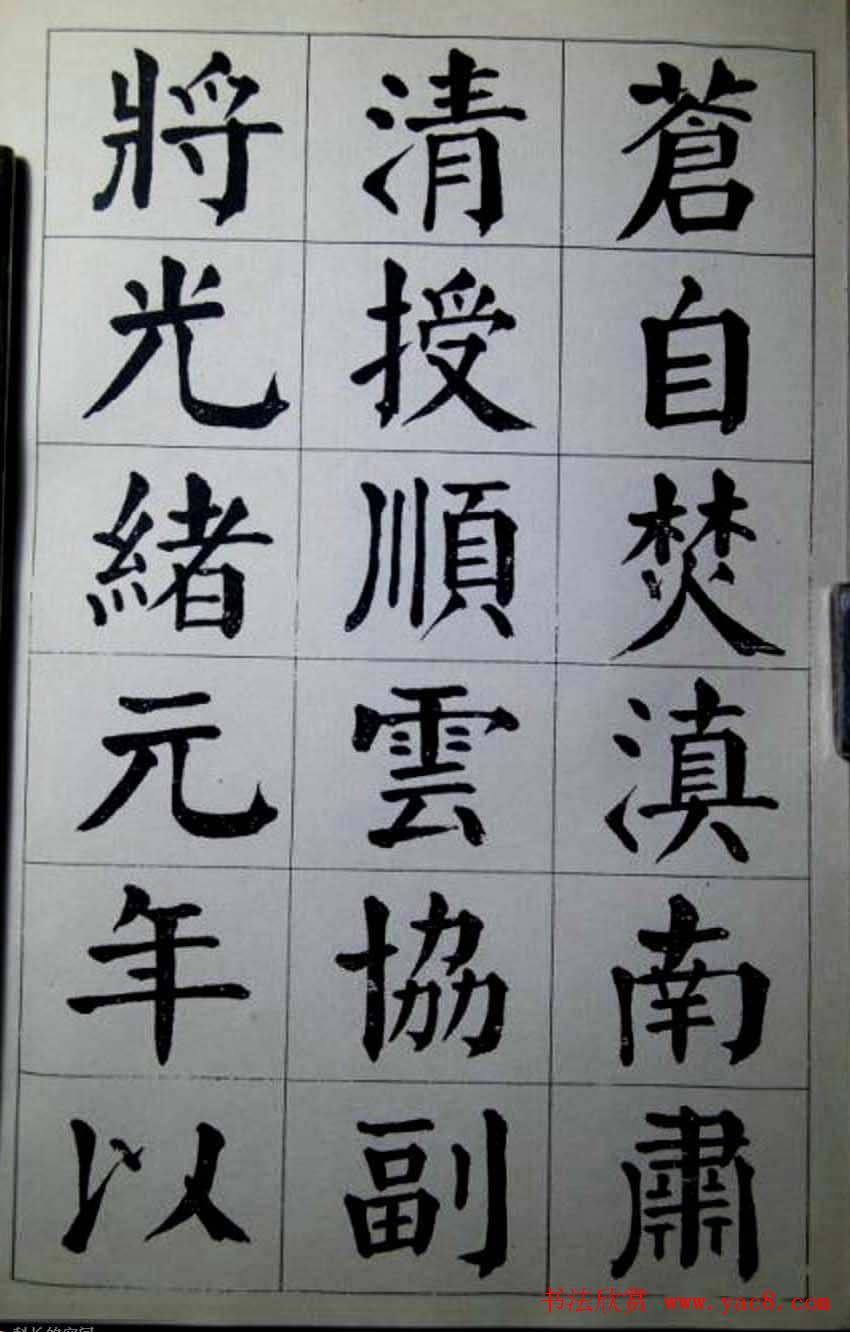 蒼自焚滇南肅
清授順雲協副
將光緒元年以
书法欣赏 www.yac8.com